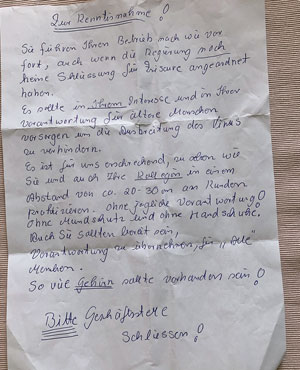 Zur Kenntnisnahme!
Sie führen Ihren Betrieb nach wie vor
fort, auch wenn die Regierung noch
keine Schliessung für Frisöre angeordnet
haben.
Es sollte in Ihrem Interesse und in Ihrer
Verantwortung für ältere Menschen
vorsorgen um die Ausbreitung des Virus
zu verhindern.
Es ist für uns erschreckend, zu sehen wie
Sie und auch Ihre Kollegen in einem
Abstand von ca. 20-30 cm am Kunden
praktizieren. Ohne jegliche Verantwortung!
Ohne Mundschutz und ohne Handschuhe.
Auch Sie sollten bereit sein,
Verantwortung zu übernehmen, für „alle“
Menschen.
So viel Gehirn sollte vorhanden sein!
Bitte Geschäftsstelle
Schliessen!